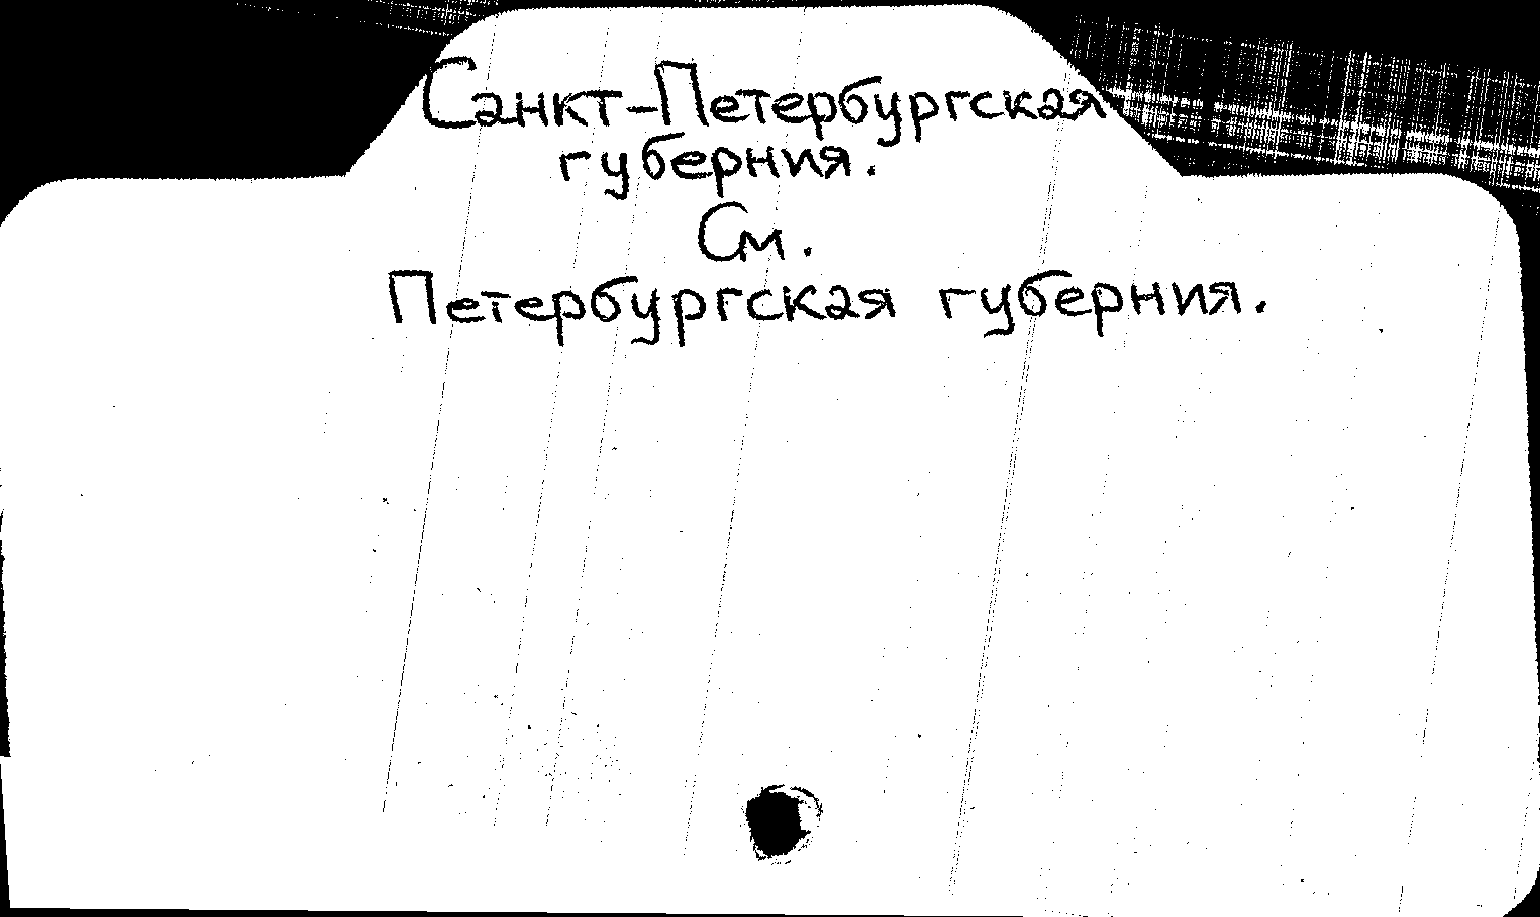 Санкт-Петербургская
губерния.
См.
Петербургская губерния.